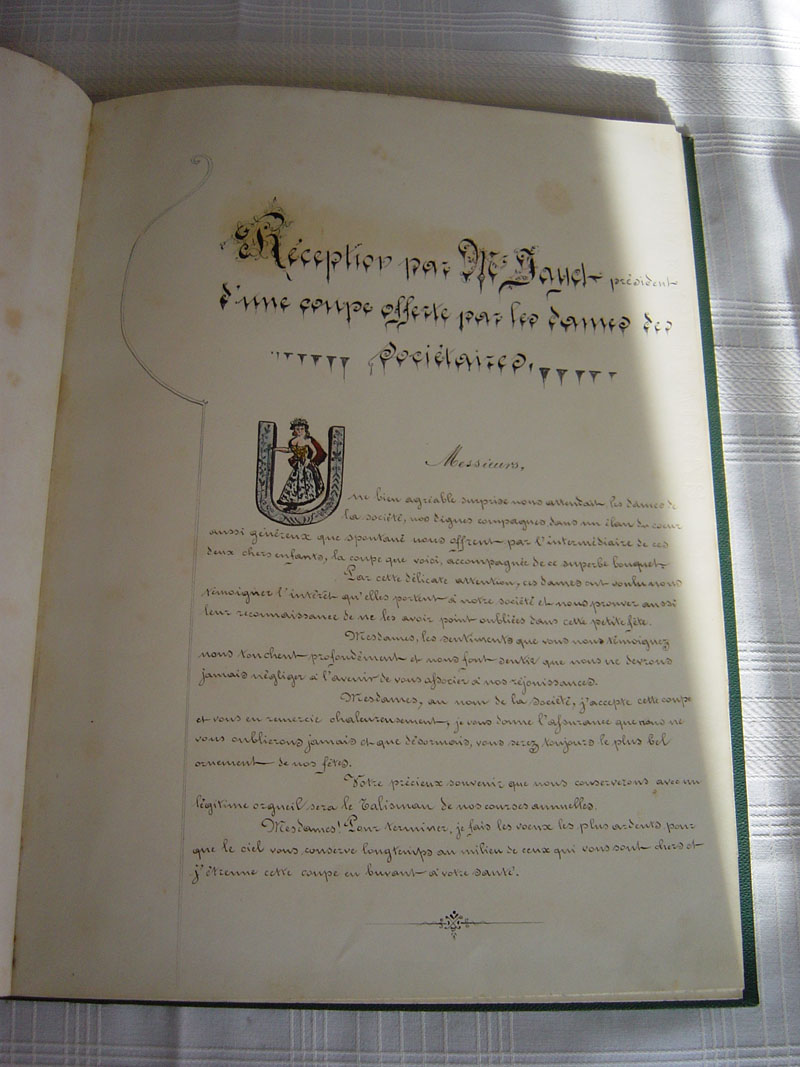 Réception par Mr Jayet président
d'une coupe offerte par les dames des
Sociétaires.
Messieurs,
Une bien agréable surprise nous attendait, les dames de
la société, nos dignes compagnes dans un élan du coeur
aussi généreux que spontané nous offrent par l'intermédiaire de ces
deux chers enfants, la coupe que voici, accompagnée de ce superbe bouquet
Par cette délicate attention, ces dames ont voulu nous
témoigner l'intérêt qu'elles portent à notre société et nous prouver aussi
leur reconnaissance de ne les avoir point oubliées dans cette petite fête.
Mesdames, les sentiments que vous nous témoignez
nous touchent profondément et nous font sentir que nous ne devrons
jamais négliger à l'avenir de vous associer à nos réjouissances.
Mesdames, au nom de la société, j'accepte cette coupe
et vous en remercie chaleureusement, je vous donne l'assurance que nous ne
vous oublierons jamais et que désormais, vous serez toujours le plus bel
ornement de nos fêtes.
Votre précieux souvenir que nous conserverons avec un
légitime orgueil sera le Talisman de nos courses annuelles.
Mesdames! Pour terminer, je fais les voeux les plus ardents pour
que le ciel vous conserve longtemps au milieu de ceux qui vous sont chers et
j'étrenne cette coupe en buvant à votre santé.